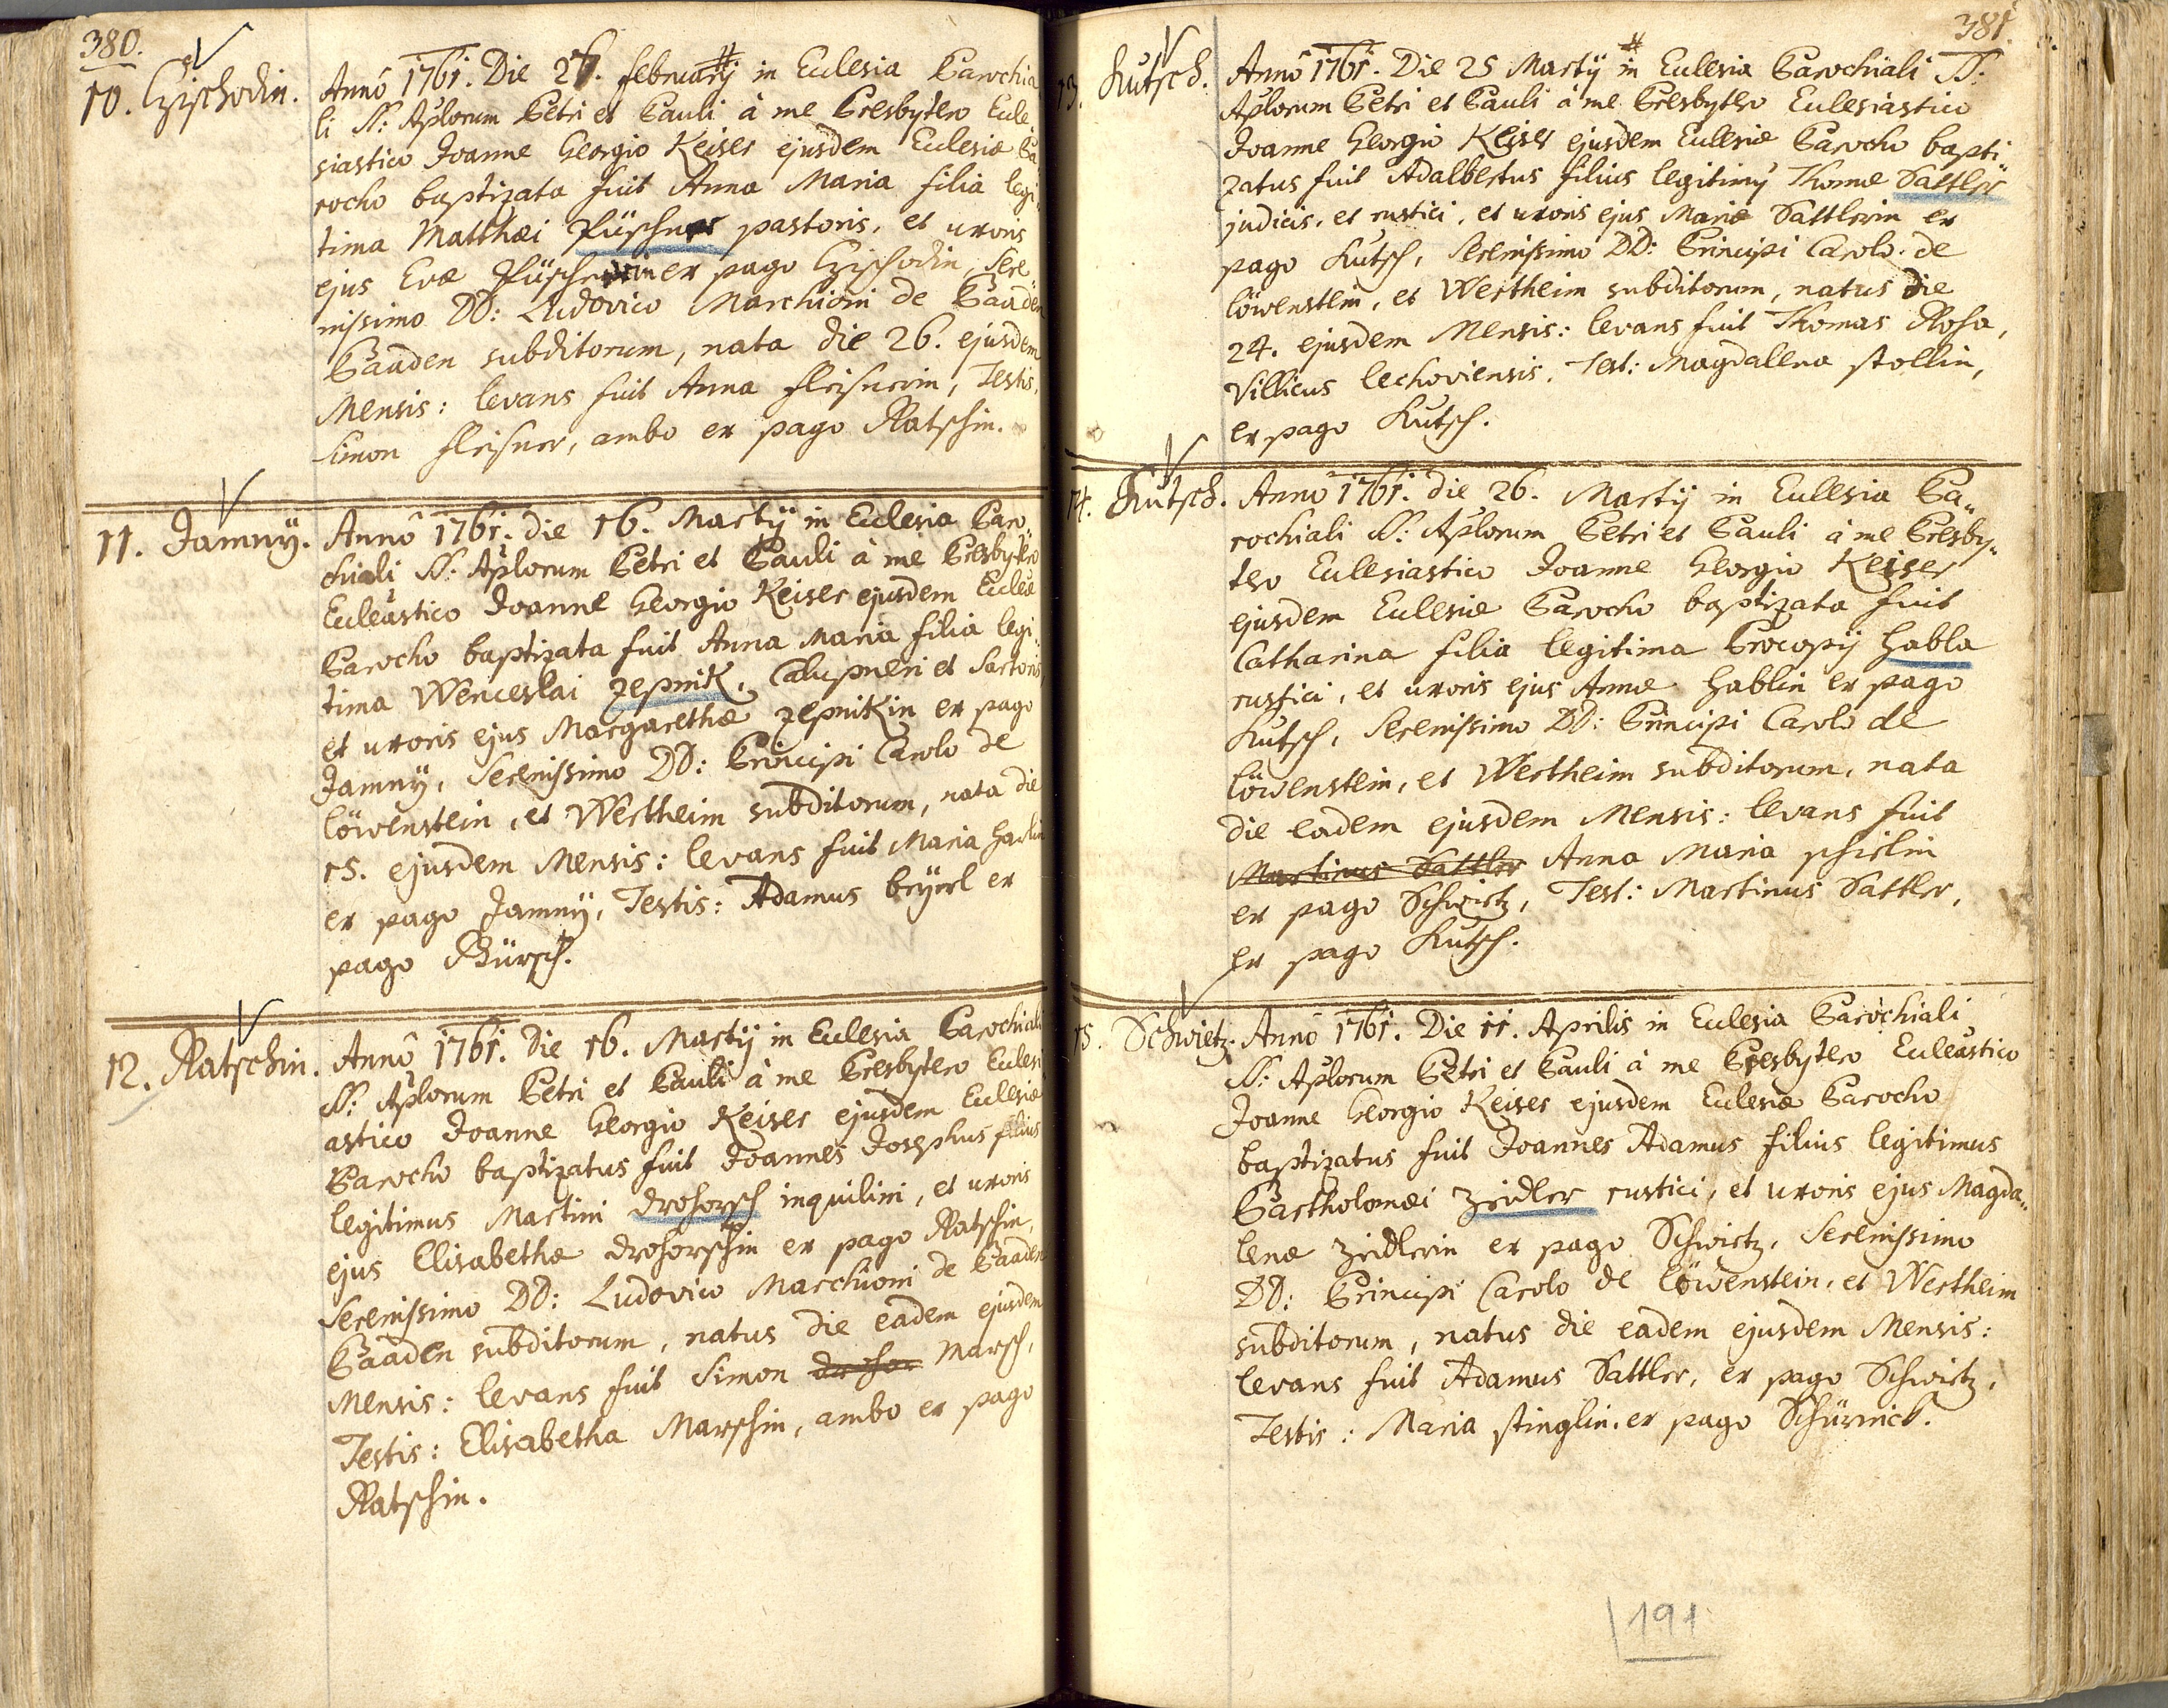 380.
10. Czischodin.
Anno 1761. Die 27. februarij in Eclesia Parochia
li SS: Aplorum Petri et Pauli à me Presbytero Ecle
siastico Joanne Georgio Keiser ejusdem Eclesiæ Pa„
rocho baptizata fuit Anna Maria filia legi„
tima Matthæi Püschner pastoris, et uxoris
ejus Evæ Püschnerin ex pago Czischodin, Sere„
nissimo DD: Ludovico Marchioni de Baaden
Baaden subditorum, nata die 26. ejusdem
Mensis: levans fuit Anna fleisnerin, Testis,
Simon fleisner, ambo ex pago Ratschin.
11. Jamnÿ.
Anno 1761. die 16. Martij in Eclesia Paro„
chiali SS: Aplorum Petri et Pauli à me Presbytero
Ecleastico Joanne Georgio Keiser ejusdem Ecleæ
Parocho baptizata fuit Anna Maria filia legi„
tima Wenceslai Zepnik, Calupneri et Sartoris
et uxoris ejus Margarethæ Zepnikin ex pago
Jamnÿ, Serenissimo DD: Principi Carolo de
löwenstein, et Wertheim subditorum, nata die
15. ejusdem Mensis: levans fuit Maria
ex pago Jamnÿ, Testis: Adamus beÿerl ex
pago Pürsch.
12. Ratschin.
Anno 1761. Die 16. Martij in Eclesia Parochiali
SS: Aplorum Petri et Pauli à me Presbytero Eclesi
astico Joanne Georgio Keiser ejusdem Eclesiæ
Parocho baptizatus fuit Joannes Josephus filius
legitimus Martini drohorsch inquilini, et uxoris
ejus Elisabethæ drohorschin ex pago Ratschin,
Serenissimo DD: Ludovico Marchioni de Baaden
Baaden subditorum, natus die eadem ejusdem
Mensis: levans fuit Simon drohor Marsch,
Testis: Elisabetha Marschin, ambo ex pago
Ratschin.
381
13. Kutsch.
Anno 1761. Die 25 Martij in Eclesia Parochiali SS:
Aplorum Petri et Pauli à me Presbytero Eclesiastico
Joanne Georgio Keiser ejusdem Eclesiæ Parocho bapti„
zatus fuit Adalbertus filius legitimg Thomæ Sattler
judicis, et rustici, et uxoris ejus Mariæ Sattlerin ex
pago Kutsch, Serenissimo DD: Principi Carolo de
löwenstein, et Wertheim subditorum, natus die
24. ejusdem Mensis: levans fuit Thomas Rosa,
Villicus lechoviensis. Test: Magdalena stollin,
ex pago Kutsch.
14. Kutsch.
Anno 1761. die 26. Martij in Eclesia Pa„
rochiali SS: Aplorum Petri et Pauli à me Presby„
tero Eclesiastico Joanne Georgio Keiser
ejusdem Eclesiæ Parocho baptizata fuit
Catharina filia legitima Procopij Habla
rustici, et uxoris ejus Annæ Hablin ex pago
Kutsch, Serenissimo DD: Principi Carolo de
löwenstein, et Wertheim subditorum, nata
die eadem ejusdem Mensis: levans fuit
Martinus Sattler Anna Maria
ex pago Schwietz, Test: Martinus Sattler,
ex pago Kutsch.
15. Schwietz.
Anno 1761. Die 11. Aprilis in Eclesia Parochiali
SS: Aplorum Petri et Pauli à me Presbytero Ecleastico
Joanne Georgio Keiser ejusdem Eclesiæ Parocho
baptizatus fuit Joannes Adamus filius legitimus
Bartholomæi Zeidler rustici, et uxoris ejus Magda„
lenæ Zeidlerin ex pago Schwietz, Serenissimo
DD: Principi Carolo de löwenstein, et Wertheim
subditorum, natus die eadem ejusdem Mensis:
levans fuit Adamus Sattler, ex pago Schwietz,
Testis: Maria stinglin, ex pago Schürnick.
191